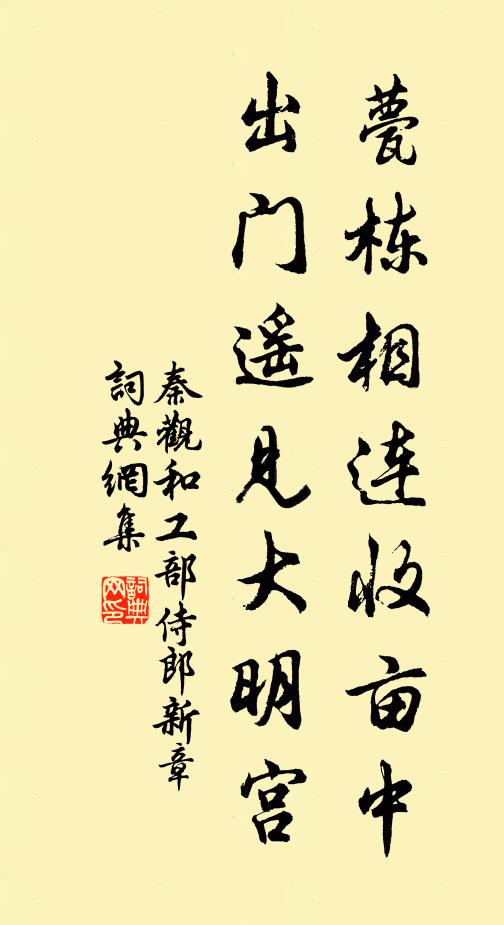 甍栋相连收亩中
出门遥见大明宫
秦觀和工部侍郎新章
詞典網集
詞典网印